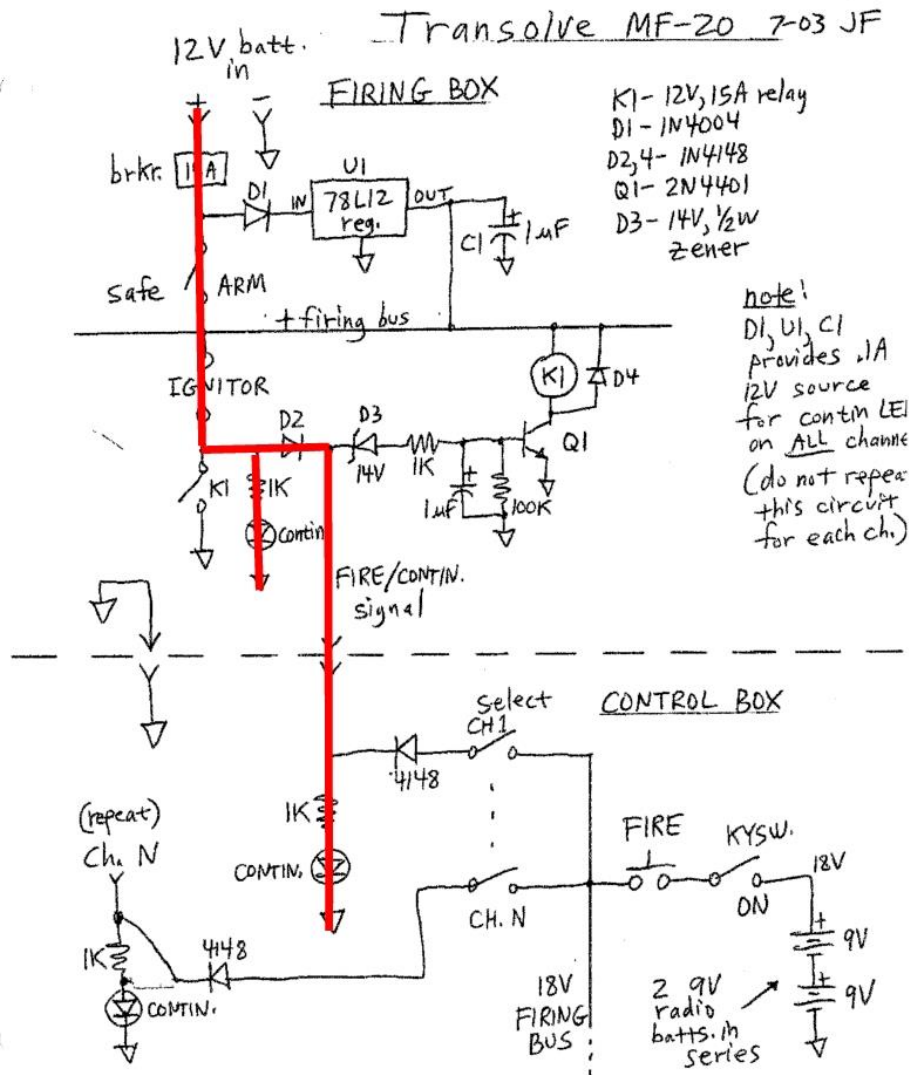 Transolve MF-20 7-03 JF
12V batt.
in
+ -
FIRING BOX
K1- 12V, 15A relay
D1- 1N4004
D2,4- 1N4148
Q1- 2N4401
D3- 14V, 1/2W
zener
brkr.
D1
IN
U1
78L12
reg.
OUT
C1
+
1uF
Safe
ARM
+ firing bus
note!
D1, U1, C1
provides .1A
12V source
for contin LE
on ALL channe
(do not repea
this circuit
for each ch.)
IGNITOR
K1
D4
D2
D3
14V
1K
Q1
K1
1K
Contin
+
1uF
100K
FIRE/CONTIN.
signal
CONTROL BOX
Select
CH1
4148
1K
CONTIN.
(repeat)
Ch. N
FIRE
KYSW.
18V
ON
CH. N
+
9V
+
9V
1K
4148
CONTIN.
18V
FIRING
BUS
2 9V
radio
batts. in
series